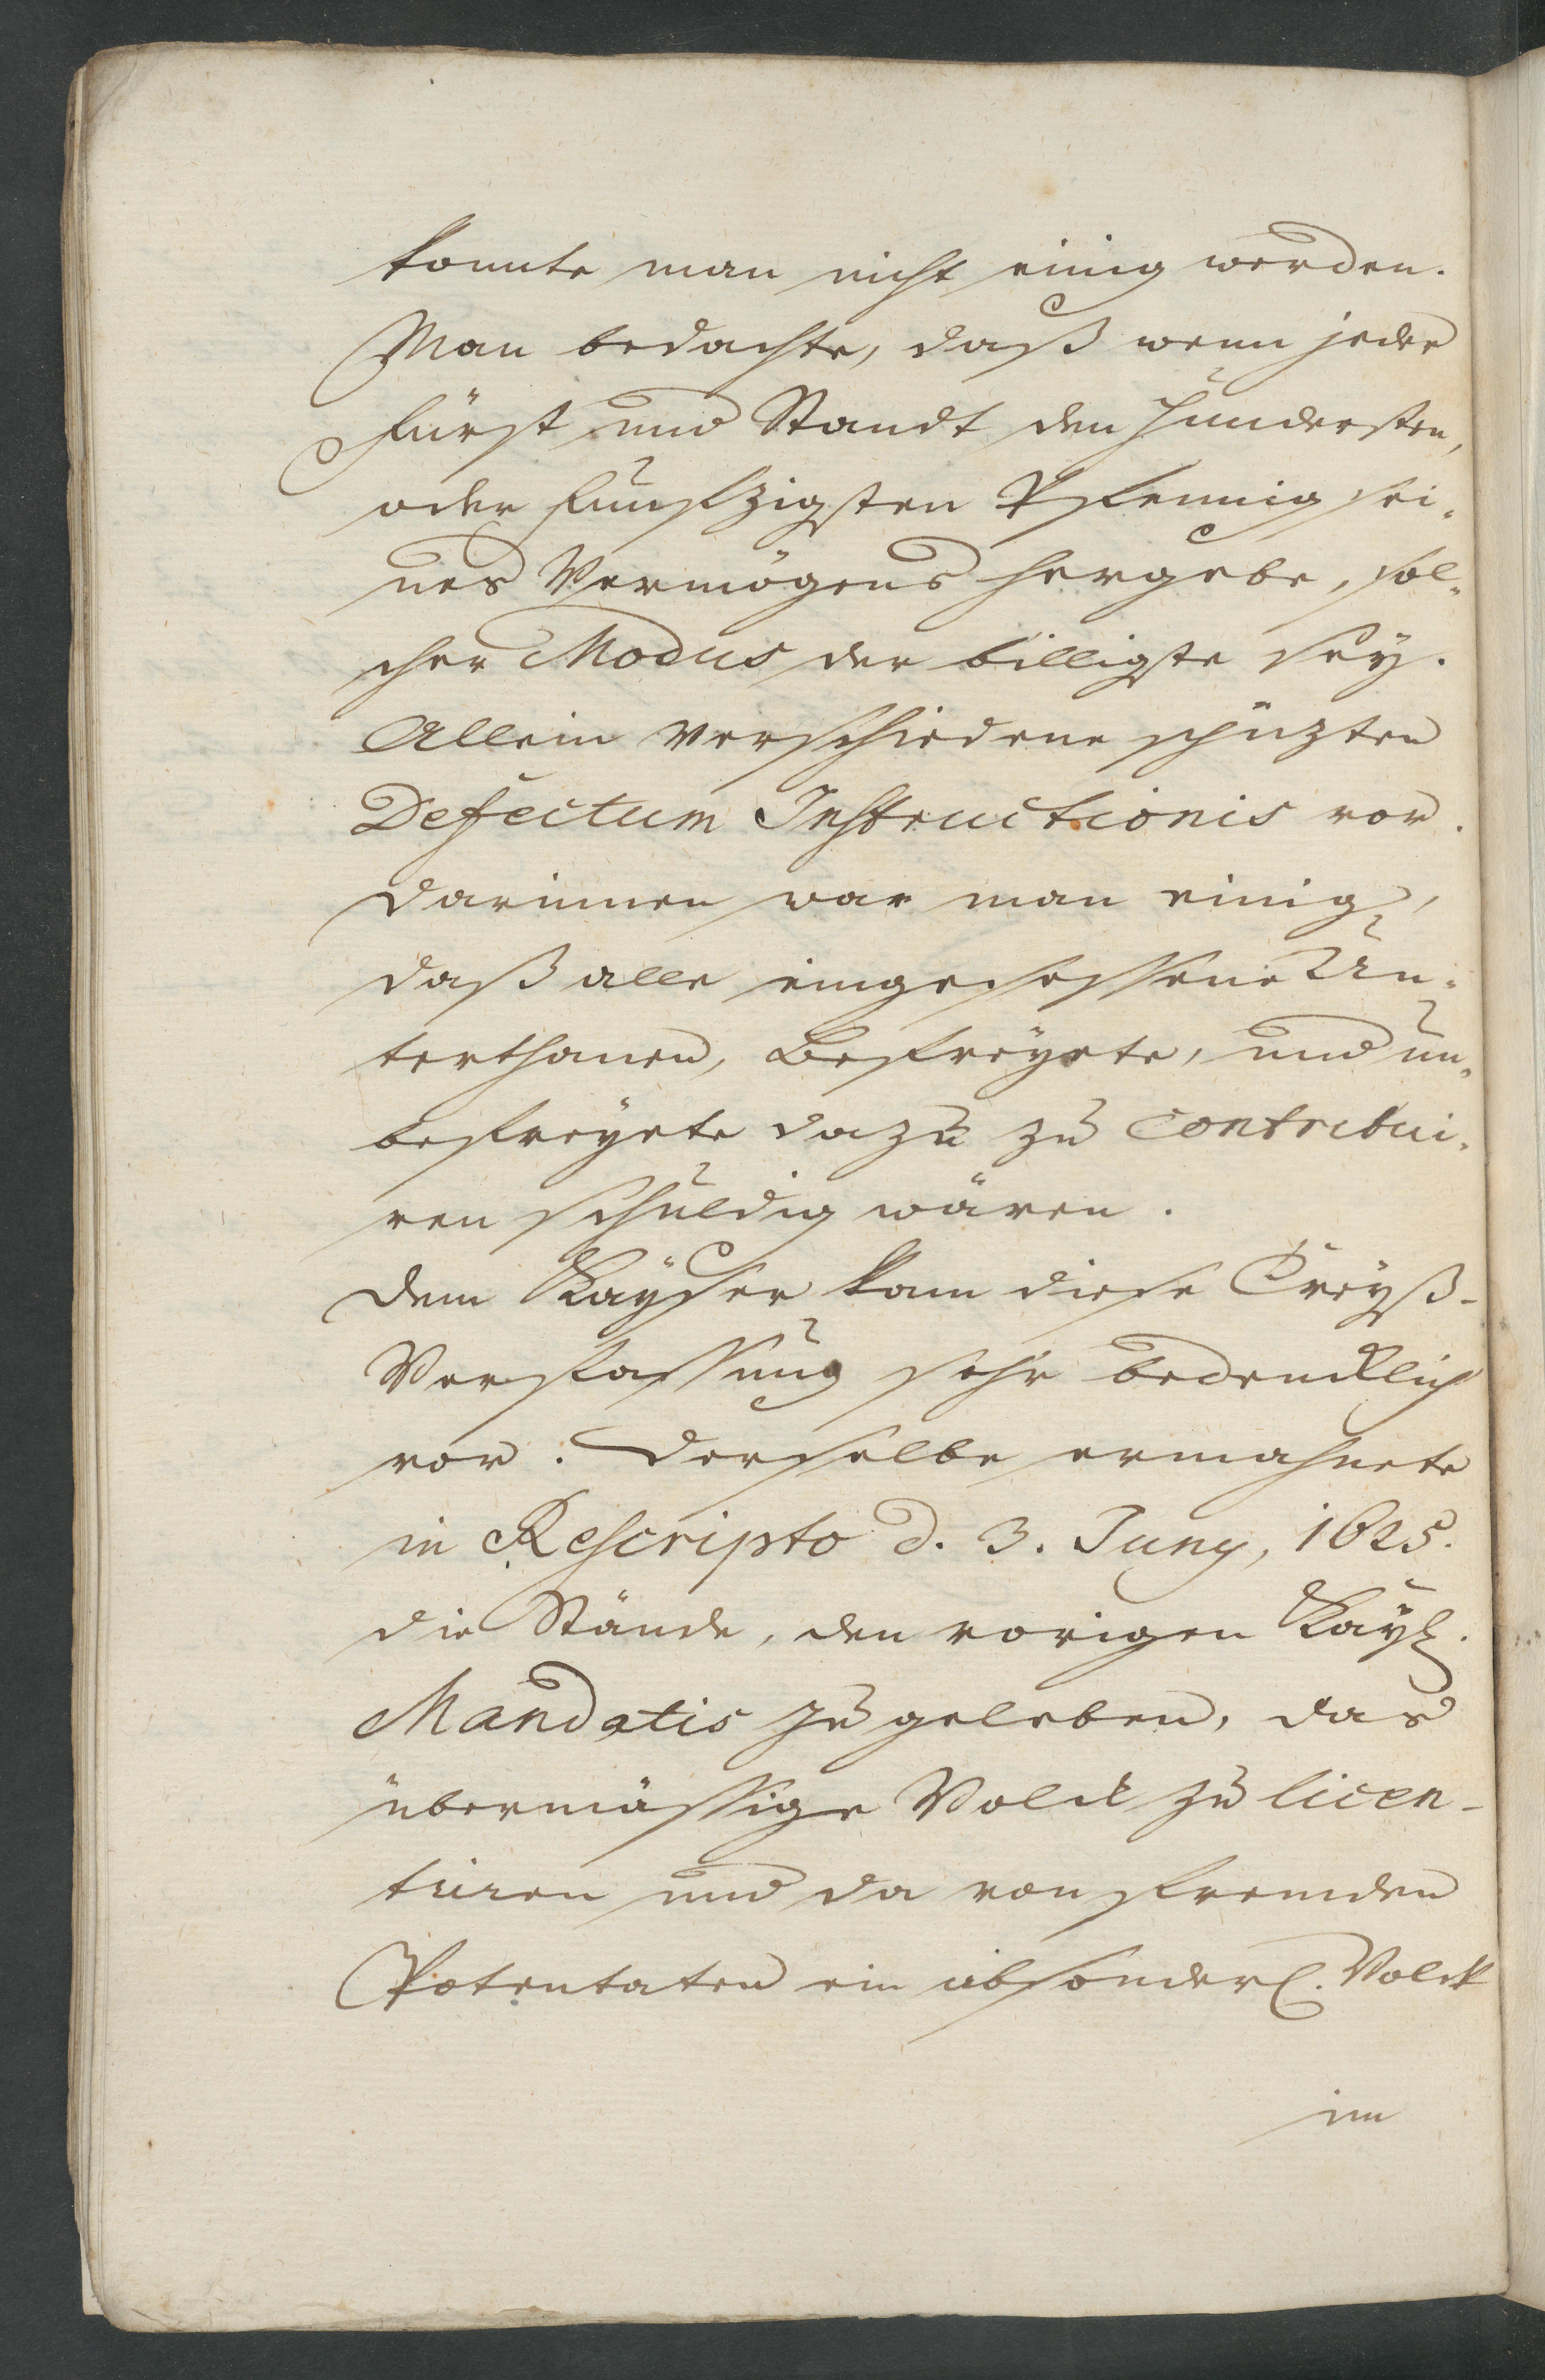 konnte man nicht einig werden.
Man bedachte, daß wenn jeder
Fürst und Standt den hundersten,
oder funfzigsten Pfennig sei-
nes Vermögens hergebe, sol-
cher Modus der billigste seÿ.
Allein verschiedene schüzten
Defectum Instructionis vor.
darinnen war man einig,
daß alle eingesessene Un-
terthanen, Befreÿete, und un-
befreÿete dazu zu contribui-
ren schuldig wären.
Dem Kaÿser kam diese Creÿß-
Verfassung sehr bedencklich
vor. Derselbe ermahnete
in Rescripto d. 3. Juny, 1625.
die Stände, den vorigen Kaÿl.
Mandatis zu geleben, das
übermässige Volck zu licen-
tiiren und da von fremden
Potentaten ein absonderl. Volck
im